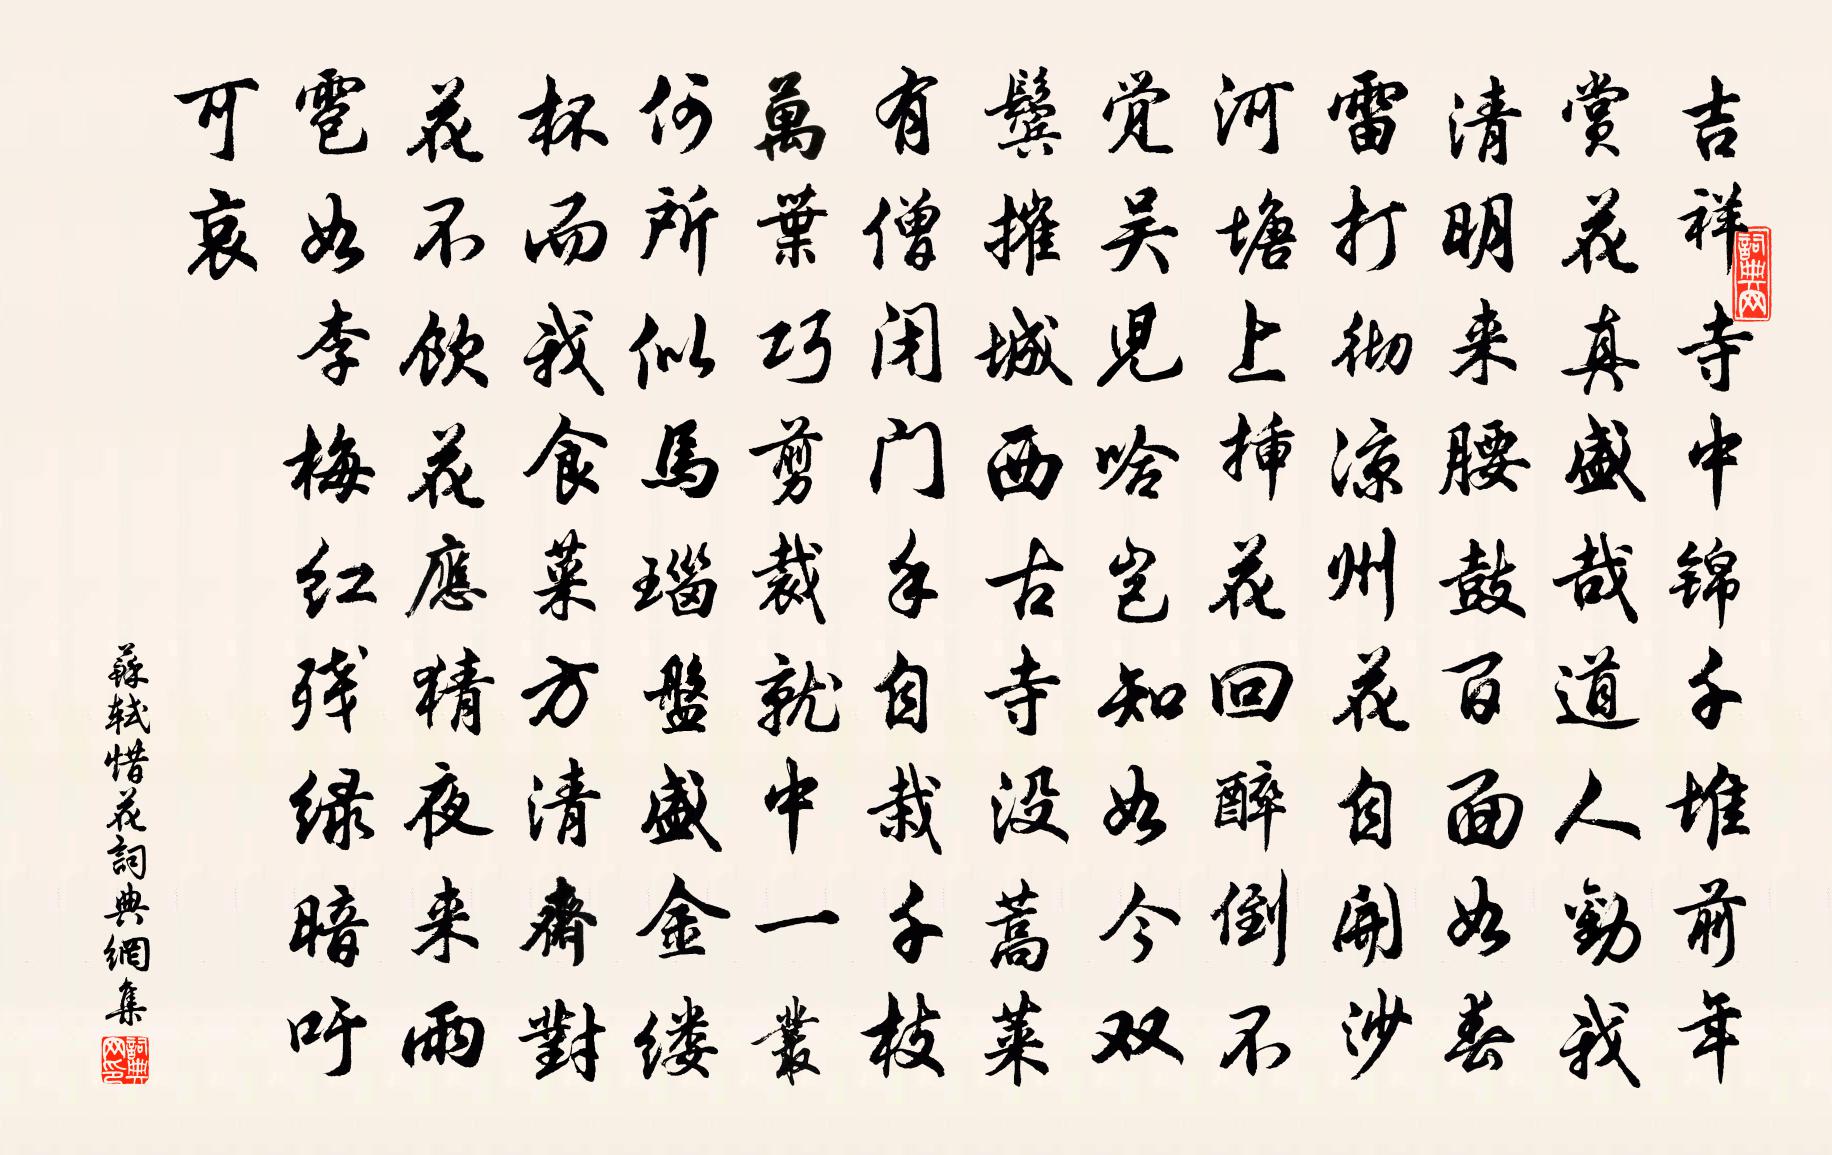 吉祥寺中锦千堆前年
赏花真盛哉道人勸我
清明来腰鼓百面如春
雷打彻凉州花自開沙
河塘上插花回醉倒不
觉吴兒咍岂知如今双
鬓摧城西古寺没蒿莱
有僧闭门手自栽千枝
萬葉巧剪裁就中一叢
何所似馬瑙盤盛金缕
杯而我食菜方清齋對
花不飲花應猜夜来雨
雹如李梅红残绿暗吁
可哀
蘇軾惜花詞典網集
詞典网
詞典网印